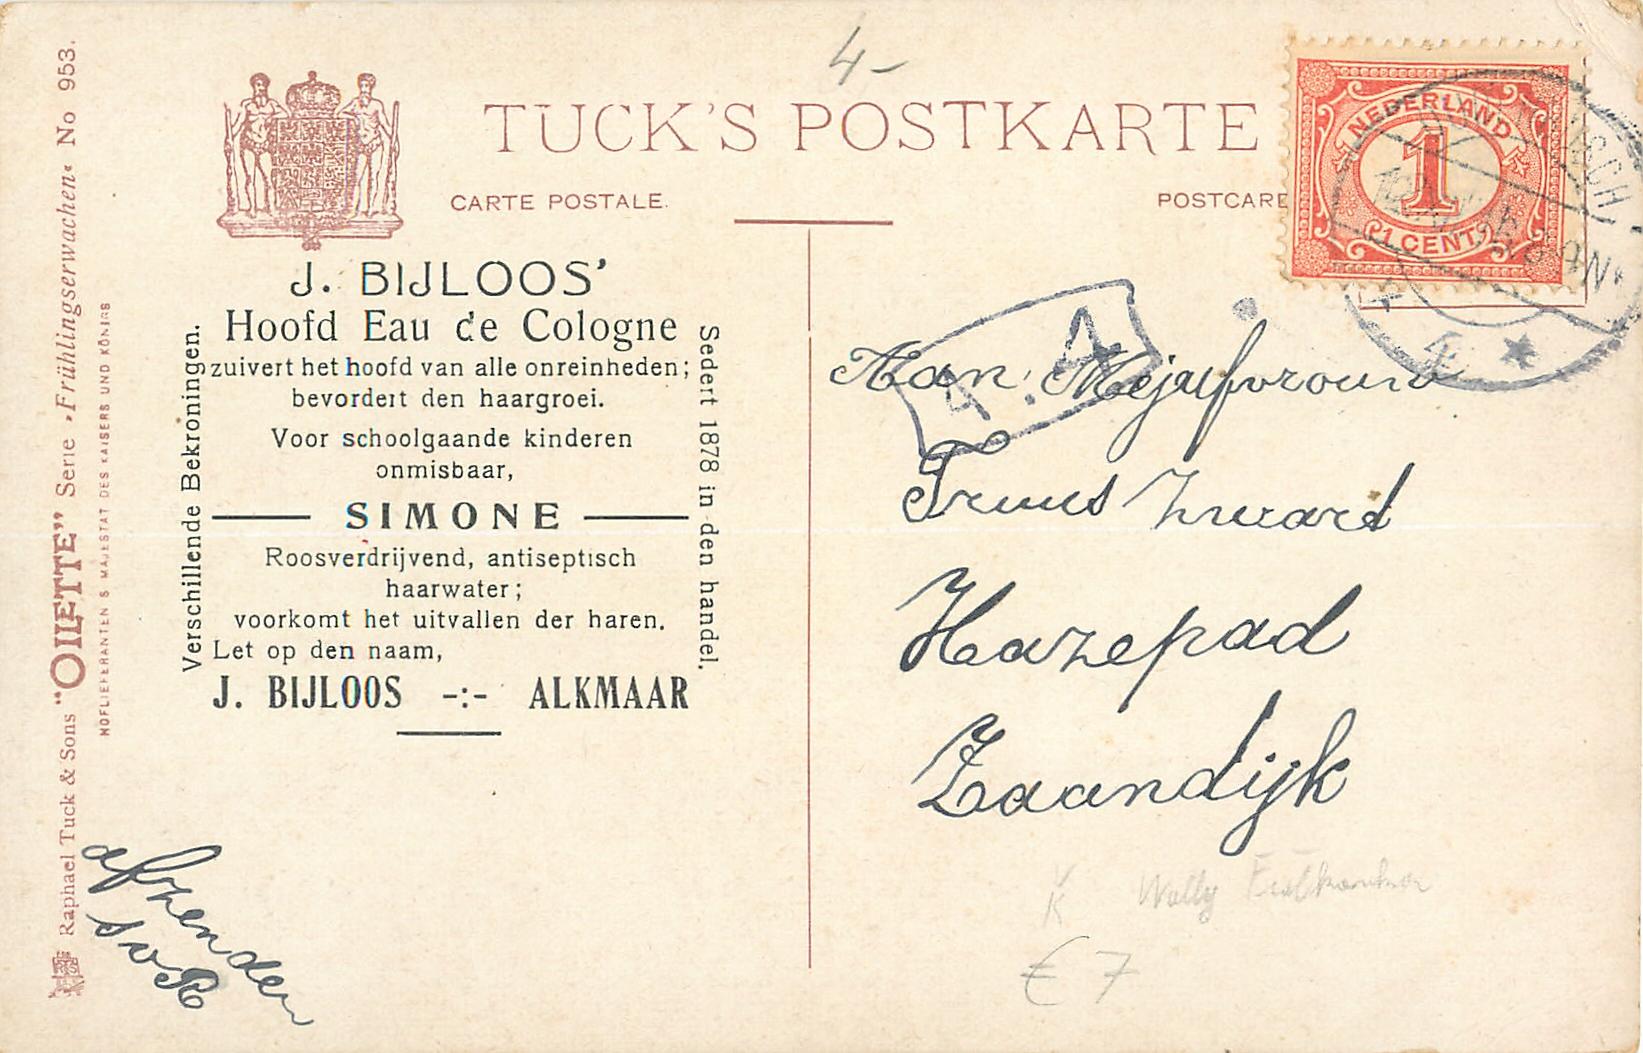 4-
TUCK'S POSTKARTE
CARTE POSTALE.
POSTCARD
NEDERLAND
1
1 CENT
4
Raphael Tuck & Sons "OILETTE" Serie »Frühlingserwachen« No 953.
HOFLIEFERANTEN S MAJESTÄT DES KAISERS UND KÖNIGS
J. BIJLOOS'
Hoofd Eau de Cologne
zuivert het hoofd van alle onreinheden;
bevordert den haargroei.
Voor schoolgaande kinderen
onmisbaar,
SIMONE
Roosverdrijvend, antiseptisch
haarwater;
voorkomt het uitvallen der haren.
Let op den naam,
J. BIJLOOS -:- ALKMAAR
Verschillende Bekroningen.
Sedert 1878 in den handel.
Aan Mejufvrouw
Truus Zwart
Hazepad
Zaandijk
afzender
SvR
K Wally
€ 7